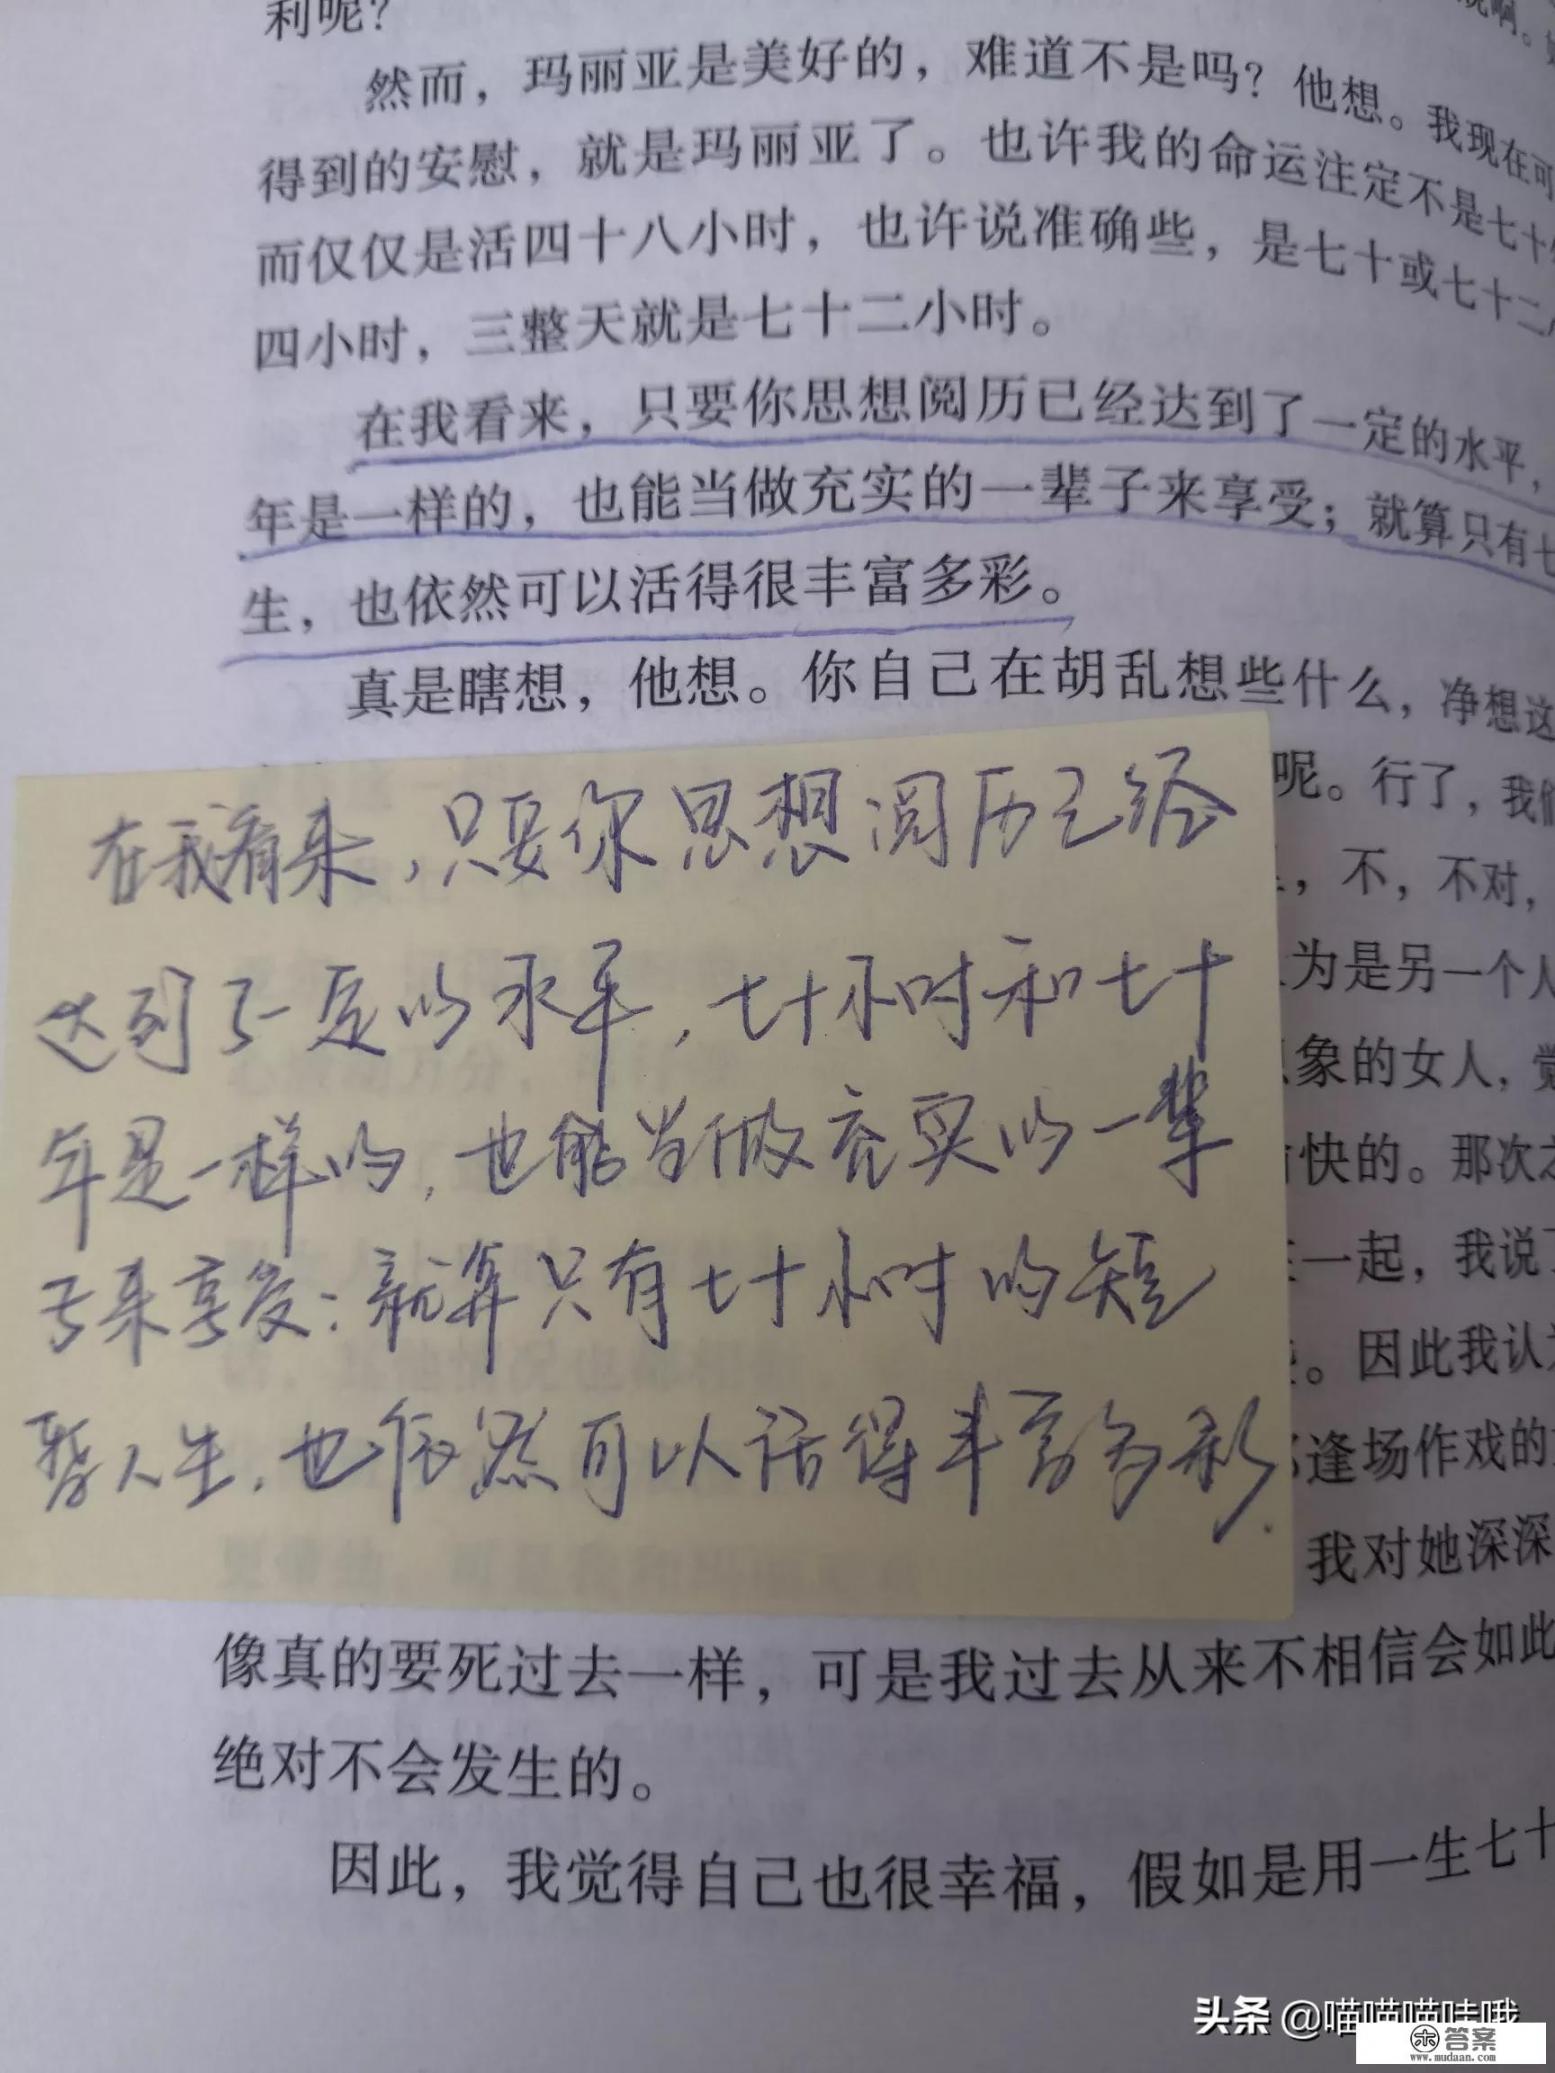 利呢？
然而，玛丽亚是美好的，难道不是吗？他想。我现在可
得到的安慰，就是玛丽亚了。也许我的命运注定不是七十
而仅仅是活四十八小时，也许说准确些，是七十或七十二
四小时，三整天就是七十二小时。
在我看来，只要你思想阅历已经达到了一定的水平，
年是一样的，也能当做充实的一辈子来享受；就算只有七
生，也依然可以活得很丰富多彩。
真是瞎想，他想。你自己在胡乱想些什么，净想这
呢。行了，我们
，不，不对，
为是另一个人
象的女人，觉
快的。那次
一起，我说
。因此我认为
逢场作戏的
我对她深深
在我看来，只要你思想阅历已经
达到了一定的水平，七十小时和七十
年是一样的，也能当做充实的一辈
子来享受；就算只有七十小时的短
暂人生，也依然可以活得丰富多彩.
像真的要死过去一样，可是我过去从来不相信会如此
绝对不会发生的。
因此，我觉得自己也很幸福，假如是用一生七十
头条 @喵喵喵哇哦
答案
www.mudaan.com